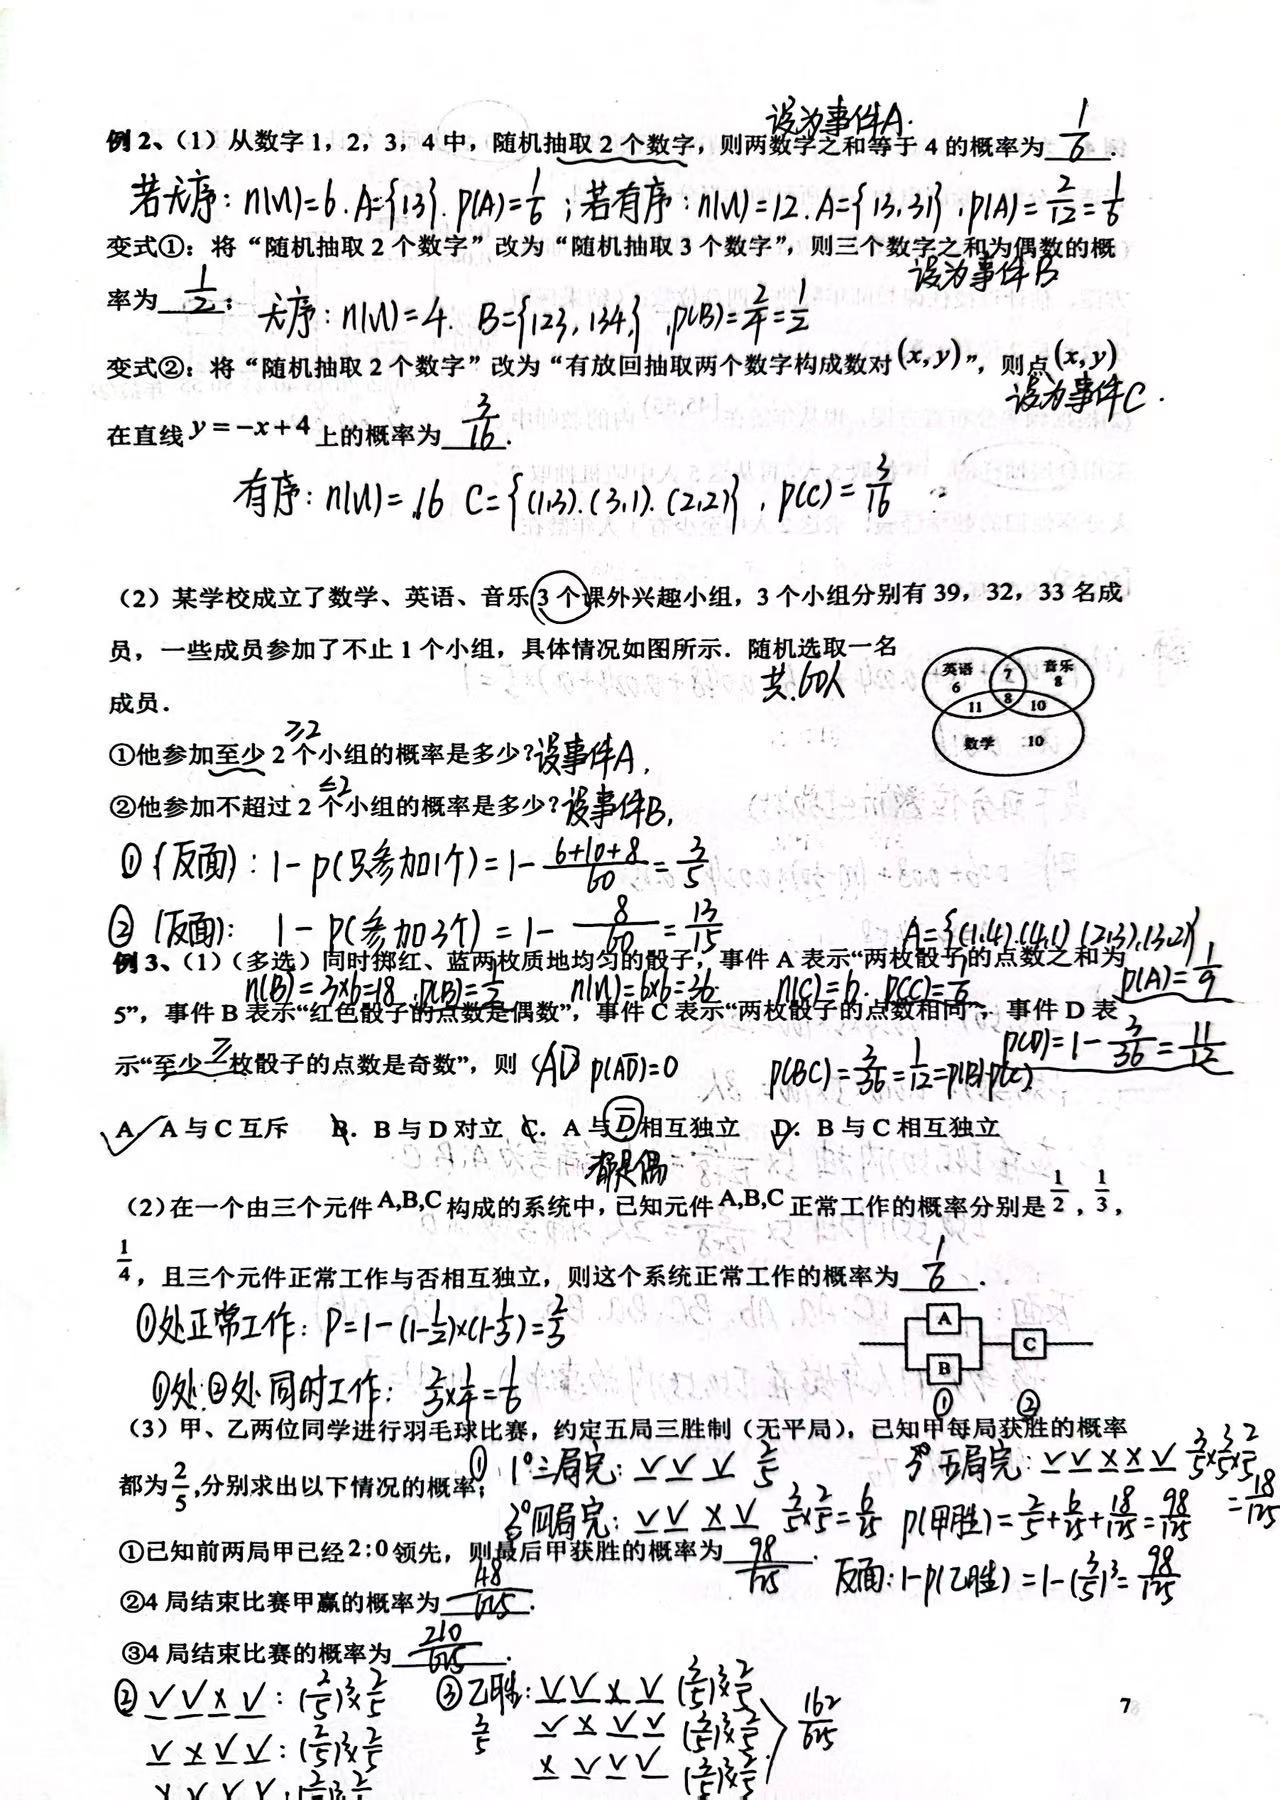 设为事件A.
例2、(1)从数字1,2,3,4中,随机抽取2个数字,则两数字之和等于4的概率为 1/6 .
若无序:n(Ω)=6.A={13}.P(A)=1/6;若有序:n(Ω)=12.A={13,31},P(A)=2/12=1/6
变式①:将“随机抽取2个数字”改为“随机抽取3个数字”,则三个数字之和为偶数的概
设为事件B
率为 1/2 ;
无序:n(Ω)=4. B={123,134},P(B)=2/4=1/2
变式②:将“随机抽取2个数字”改为“有放回抽取两个数字构成数对(x,y)”,则点(x,y)
设为事件C.
在直线y=-x+4上的概率为 3/16 .
有序:n(Ω)=16 C={(1,3).(3,1).(2,2)},P(C)=3/16
(2)某学校成立了数学、英语、音乐3个课外兴趣小组,3个小组分别有39,32,33名成
员,一些成员参加了不止1个小组,具体情况如图所示.随机选取一名
共60人
成员.
英语 6 7 音乐 8
11 8 10
数学 10
≥2
①他参加至少2个小组的概率是多少?设事件A.
≤2
②他参加不超过2个小组的概率是多少?设事件B.
①(反面):1-P(只参加1个)=1-(6+10+8)/60=3/5
②(反面):1-P(参加3个)=1-8/60=13/15
A={(1,4).(4,1)(2,3).(3,2)}
例3、(1)(多选)同时掷红、蓝两枚质地均匀的骰子,事件A表示“两枚骰子的点数之和为
n(B)=3×6=18.P(B)=1/2 n(Ω)=6×6=36 n(C)=6.P(C)=1/6 P(A)=1/9
5”,事件B表示“红色骰子的点数是偶数”,事件C表示“两枚骰子的点数相同”,事件D表
P(D)=1-3/36=11/12
示“至少一枚骰子的点数是奇数”,则(AD P(AD̅)=0 P(BC)=3/36=1/12=P(B)·P(C)
A.A与C互斥 B.B与D对立 C.A与D̅相互独立 D.B与C相互独立
都是偶
(2)在一个由三个元件A,B,C构成的系统中,已知元件A,B,C正常工作的概率分别是1/2,1/3,
1/4,且三个元件正常工作与否相互独立,则这个系统正常工作的概率为 1/6 .
①处正常工作:P=1-(1-1/2)×(1-1/3)=2/3
A
B
C
① ②
①处②处同时工作:2/3×1/4=1/6
(3)甲、乙两位同学进行羽毛球比赛,约定五局三胜制(无平局),已知甲每局获胜的概率
① 1°三局完:√√√ 2/5 3°五局完:√√××√ 3/5×3/5×2/5=18/125
都为2/5,分别求出以下情况的概率;
2°四局完:√√×√ 3/5×2/5=6/25 P(甲胜)=2/5+6/25+18/125=98/125
①已知前两局甲已经2:0领先,则最后甲获胜的概率为 98/125 .
反面:1-P(乙胜)=1-(3/5)³=98/125
②4局结束比赛甲赢的概率为 48/625 .
③4局结束比赛的概率为 210/625 .
②√√×√:(2/5)³×3/5 ③乙胜:√√×√ (3/5)³×2/5
√×√√:(2/5)³×3/5 3/5 √×√√ (3/5)³×2/5 162/625
×√√√ (3/5)³×2/5
7